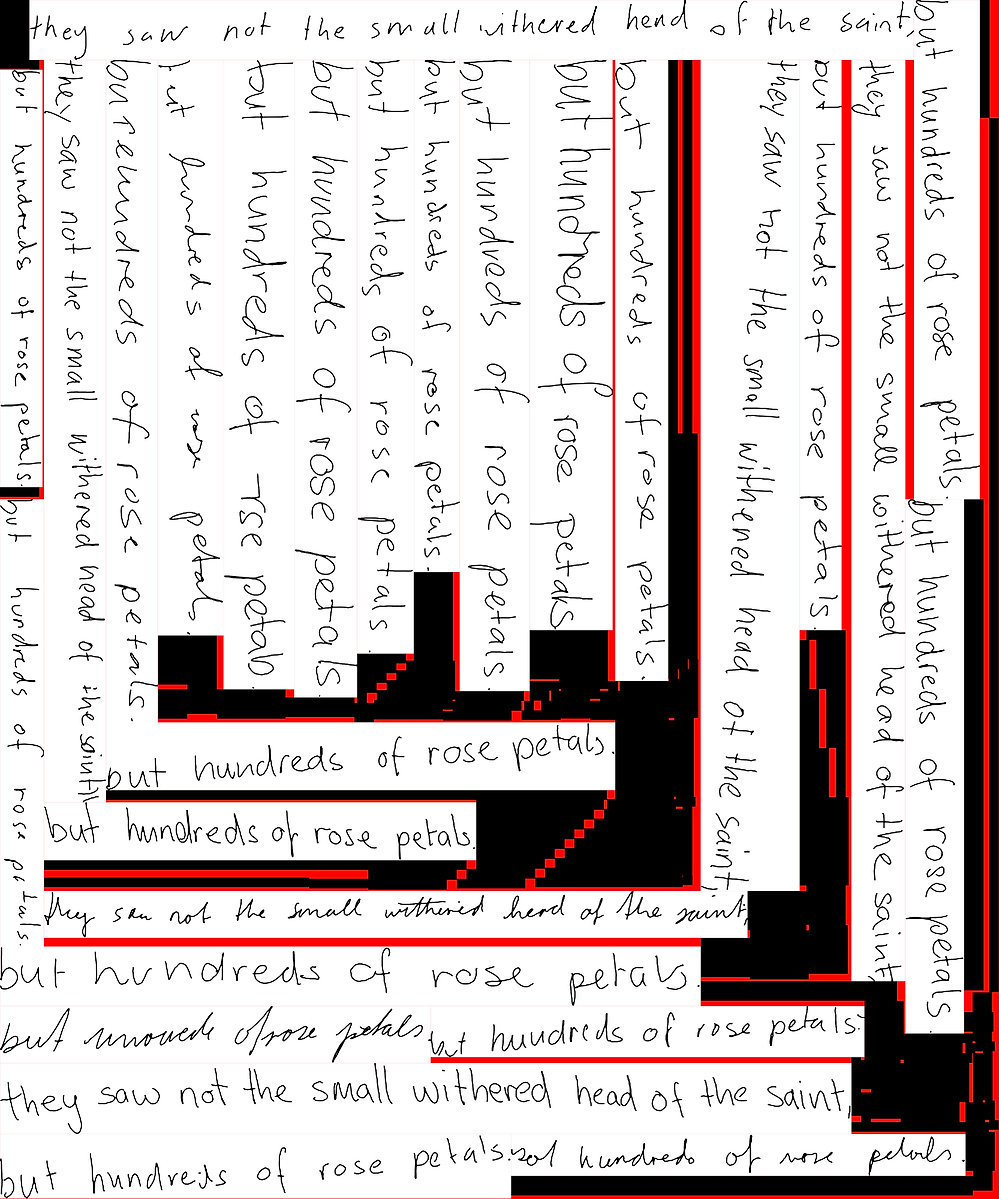 they saw not the small withered head of the saint,
but hundreds of rose petals.
but hundreds of rose petals.
they saw not the small withered head of the saint,
but hundreds of rose petals.
but hundreds of rose petals.
but hundreds of rose petals.
but hundreds of rose petals.
but hundreds of rose petals.
but hundreds of rose petals.
but hundreds of rose petals.
but hundreds of rose petals.
but hundreds of rose petals.
they saw not the small withered head of the saint,
but hundreds of rose petals.
they saw not the small withered head of the saint,
but hundreds of rose petals.
but hundreds of rose petals.
but hundreds of rose petals.
but hundreds of rose petals.
but hundreds of rose petals.
they saw not the small withered head of the saint,
but hundreds of rose petals.
but of rose petals
but hundreds of rose petals.
they saw not the small withered head of the saint,
but hundreds of rose petals.
hundreds of rose petals.